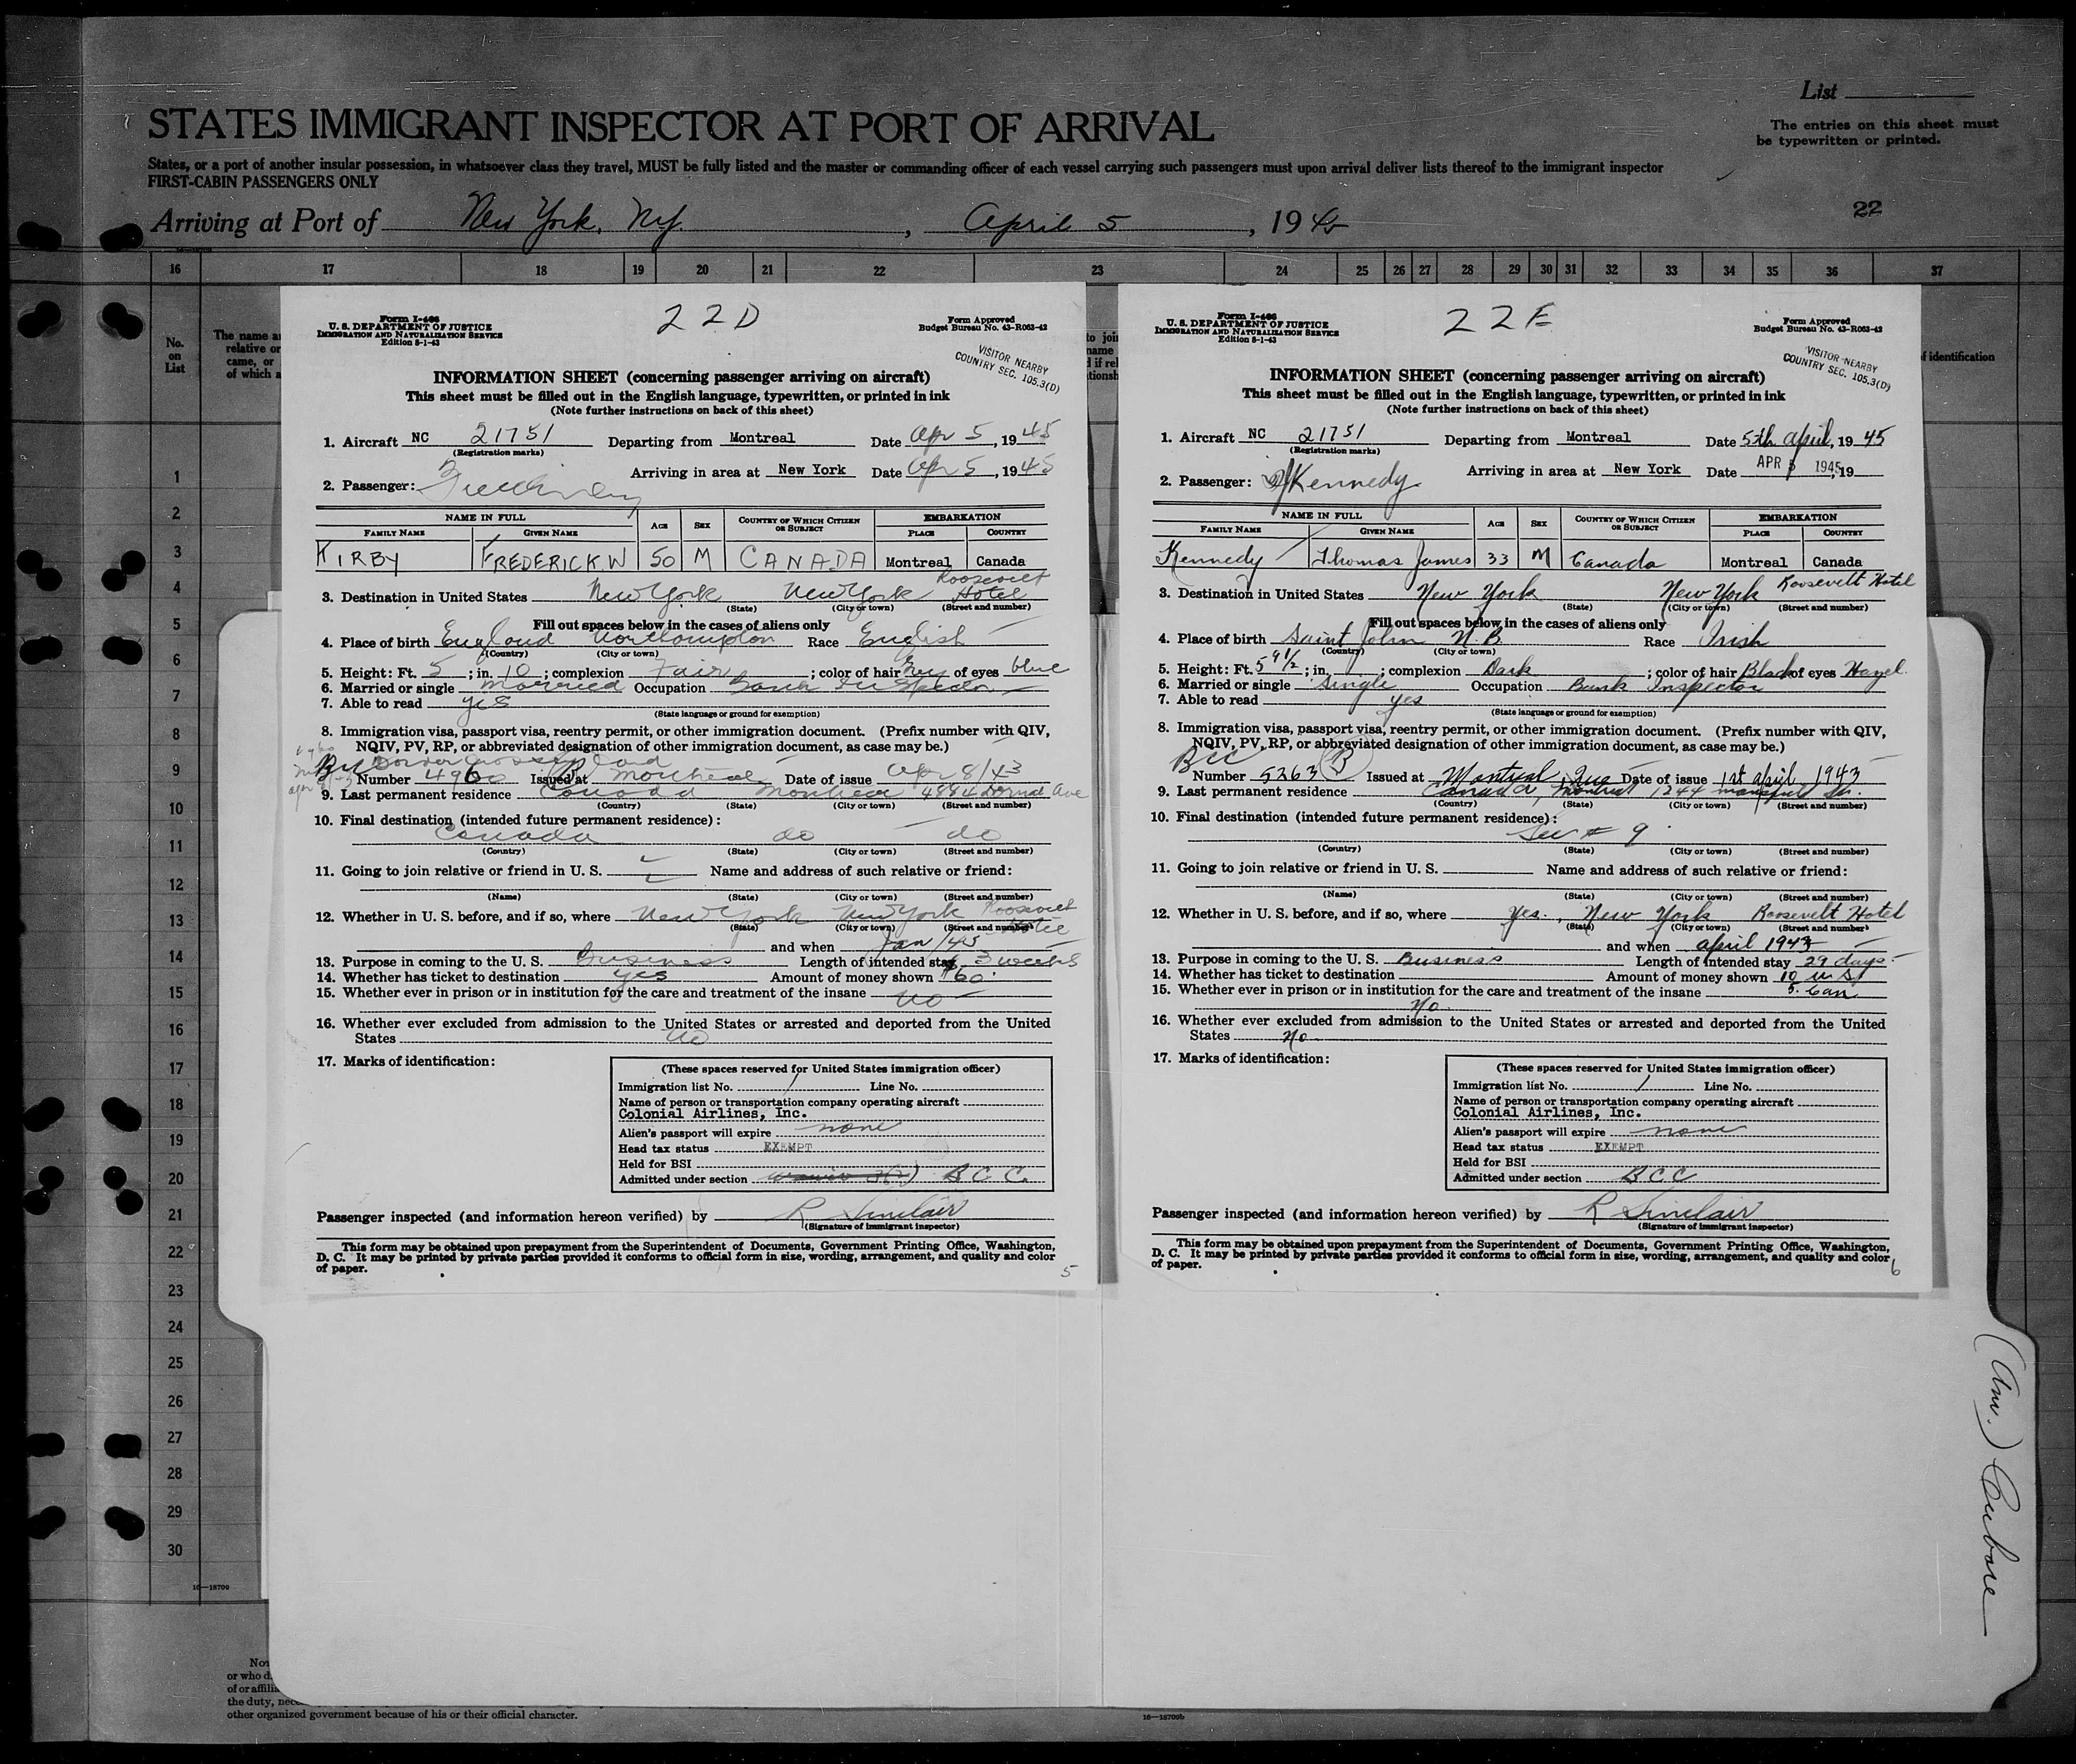 List
STATES IMMIGRANT INSPECTOR AT PORT OF ARRIVAL
The entries on this sheet must
be typewritten or printed.
States, or a port of another insular possession, in whatsoever class they travel, MUST be fully listed and the master or commanding officer of each vessel carrying such passengers must upon arrival deliver lists thereof to the immigrant inspector
FIRST-CABIN PASSENGERS ONLY
Arriving at Port of New York, N.Y., April 5, 1945
22
16 17 18 19 20 21 22 23 24 25 26 27 28 29 30 31 32 33 34 35 36 37
No.
on
List
The name a
relative or
came, or
of which a
to join
name
d if rel
tionsh
of identification
1
2
3
4
5
6
7
8
9
10
11
12
13
14
15
16
17
18
19
20
21
22
23
24
25
26
27
28
29
30
Form I-466
U. S. DEPARTMENT OF JUSTICE
IMMIGRATION AND NATURALIZATION SERVICE
Edition 8-1-43
22D
Form Approved
Budget Bureau No. 43-R063-42
VISITOR NEARBY
COUNTRY SEC. 105.3(D)
INFORMATION SHEET (concerning passenger arriving on aircraft)
This sheet must be filled out in the English language, typewritten, or printed in ink
(Note further instructions on back of this sheet)
1. Aircraft NC 21751 Departing from Montreal Date Apr 5, 1945
(Registration marks)
Arriving in area at New York Date Apr 5, 1945
2. Passenger:
NAME IN FULL AGE SEX COUNTRY OF WHICH CITIZEN OR SUBJECT EMBARKATION
FAMILY NAME GIVEN NAME PLACE COUNTRY
KIRBY FREDERICK.W 50 M CANADA Montreal Canada
3. Destination in United States New York New York Roosevelt Hotel
(State) (City or town) (Street and number)
Fill out spaces below in the cases of aliens only
4. Place of birth England Northampton Race English
(Country) (City or town)
5. Height: Ft. 5; in. 10; complexion Fair; color of hair Grey of eyes blue
6. Married or single Married Occupation Bank Inspector
7. Able to read yes
(State language or ground for exemption)
8. Immigration visa, passport visa, reentry permit, or other immigration document. (Prefix number with QIV,
NQIV, PV, RP, or abbreviated designation of other immigration document, as case may be.)
Number Issued at Montreal Date of issue Apr 8/43
9. Last permanent residence Canada Montreal 4884 Ave
(Country) (State) (City or town) (Street and number)
10. Final destination (intended future permanent residence):
Canada do do
(Country) (State) (City or town) (Street and number)
11. Going to join relative or friend in U. S. Name and address of such relative or friend:
(Name) (State) (City or town) (Street and number)
12. Whether in U. S. before, and if so, where New York New York Roosevelt Hotel
(State) (City or town) (Street and number)
and when Jan/45
13. Purpose in coming to the U. S. Business Length of intended stay 3 weeks
14. Whether has ticket to destination yes Amount of money shown $60
15. Whether ever in prison or in institution for the care and treatment of the insane no
16. Whether ever excluded from admission to the United States or arrested and deported from the United
States no
17. Marks of identification:
(These spaces reserved for United States immigration officer)
Immigration list No. 1 Line No.
Name of person or transportation company operating aircraft
Colonial Airlines, Inc.
Alien's passport will expire none
Head tax status EXEMPT
Held for BSI
Admitted under section BCC.
Passenger inspected (and information hereon verified) by R Sinclair
(Signature of immigrant inspector)
This form may be obtained upon prepayment from the Superintendent of Documents, Government Printing Office, Washington,
D. C. It may be printed by private parties provided it conforms to official form in size, wording, arrangement, and quality and color
of paper.
5
Form I-466
U. S. DEPARTMENT OF JUSTICE
IMMIGRATION AND NATURALIZATION SERVICE
Edition 8-1-43
22E
Form Approved
Budget Bureau No. 43-R063-42
VISITOR NEARBY
COUNTRY SEC. 105.3(D)
INFORMATION SHEET (concerning passenger arriving on aircraft)
This sheet must be filled out in the English language, typewritten, or printed in ink
(Note further instructions on back of this sheet)
1. Aircraft NC 21751 Departing from Montreal Date 5th April, 1945
(Registration marks)
Arriving in area at New York Date APR 5 1945, 19
2. Passenger: Kennedy
NAME IN FULL AGE SEX COUNTRY OF WHICH CITIZEN OR SUBJECT EMBARKATION
FAMILY NAME GIVEN NAME PLACE COUNTRY
Kennedy Thomas James 33 M Canada Montreal Canada
3. Destination in United States New York New York Roosevelt Hotel
(State) (City or town) (Street and number)
Fill out spaces below in the cases of aliens only
4. Place of birth Saint John N.B. Race Irish
(Country) (City or town)
5. Height: Ft. 5 9 1/2; in.; complexion Dark; color of hair Black of eyes Hazel
6. Married or single Single Occupation Bank Inspector
7. Able to read yes
(State language or ground for exemption)
8. Immigration visa, passport visa, reentry permit, or other immigration document. (Prefix number with QIV,
NQIV, PV, RP, or abbreviated designation of other immigration document, as case may be.)
BCC
Number 5263 B Issued at Montreal, Que Date of issue 1st April 1943
9. Last permanent residence Canada, Montreal 1244 St.
(Country) (State) (City or town) (Street and number)
10. Final destination (intended future permanent residence):
See # 9
(Country) (State) (City or town) (Street and number)
11. Going to join relative or friend in U. S. Name and address of such relative or friend:
(Name) (State) (City or town) (Street and number)
12. Whether in U. S. before, and if so, where Yes., New York Roosevelt Hotel
(State) (City or town) (Street and number)
and when April 1943
13. Purpose in coming to the U. S. Business Length of intended stay 29 days
14. Whether has ticket to destination Amount of money shown 10 U.S.
5. Can
15. Whether ever in prison or in institution for the care and treatment of the insane
No
16. Whether ever excluded from admission to the United States or arrested and deported from the United
States No
17. Marks of identification:
(These spaces reserved for United States immigration officer)
Immigration list No. 1 Line No.
Name of person or transportation company operating aircraft
Colonial Airlines, Inc.
Alien's passport will expire none
Head tax status EXEMPT
Held for BSI
Admitted under section BCC
Passenger inspected (and information hereon verified) by R Sinclair
(Signature of immigrant inspector)
This form may be obtained upon prepayment from the Superintendent of Documents, Government Printing Office, Washington,
D. C. It may be printed by private parties provided it conforms to official form in size, wording, arrangement, and quality and color
of paper.
6
16—18709
or who d
of or affilia
the duty, nece
other organized government because of his or their official character.
16—18709b